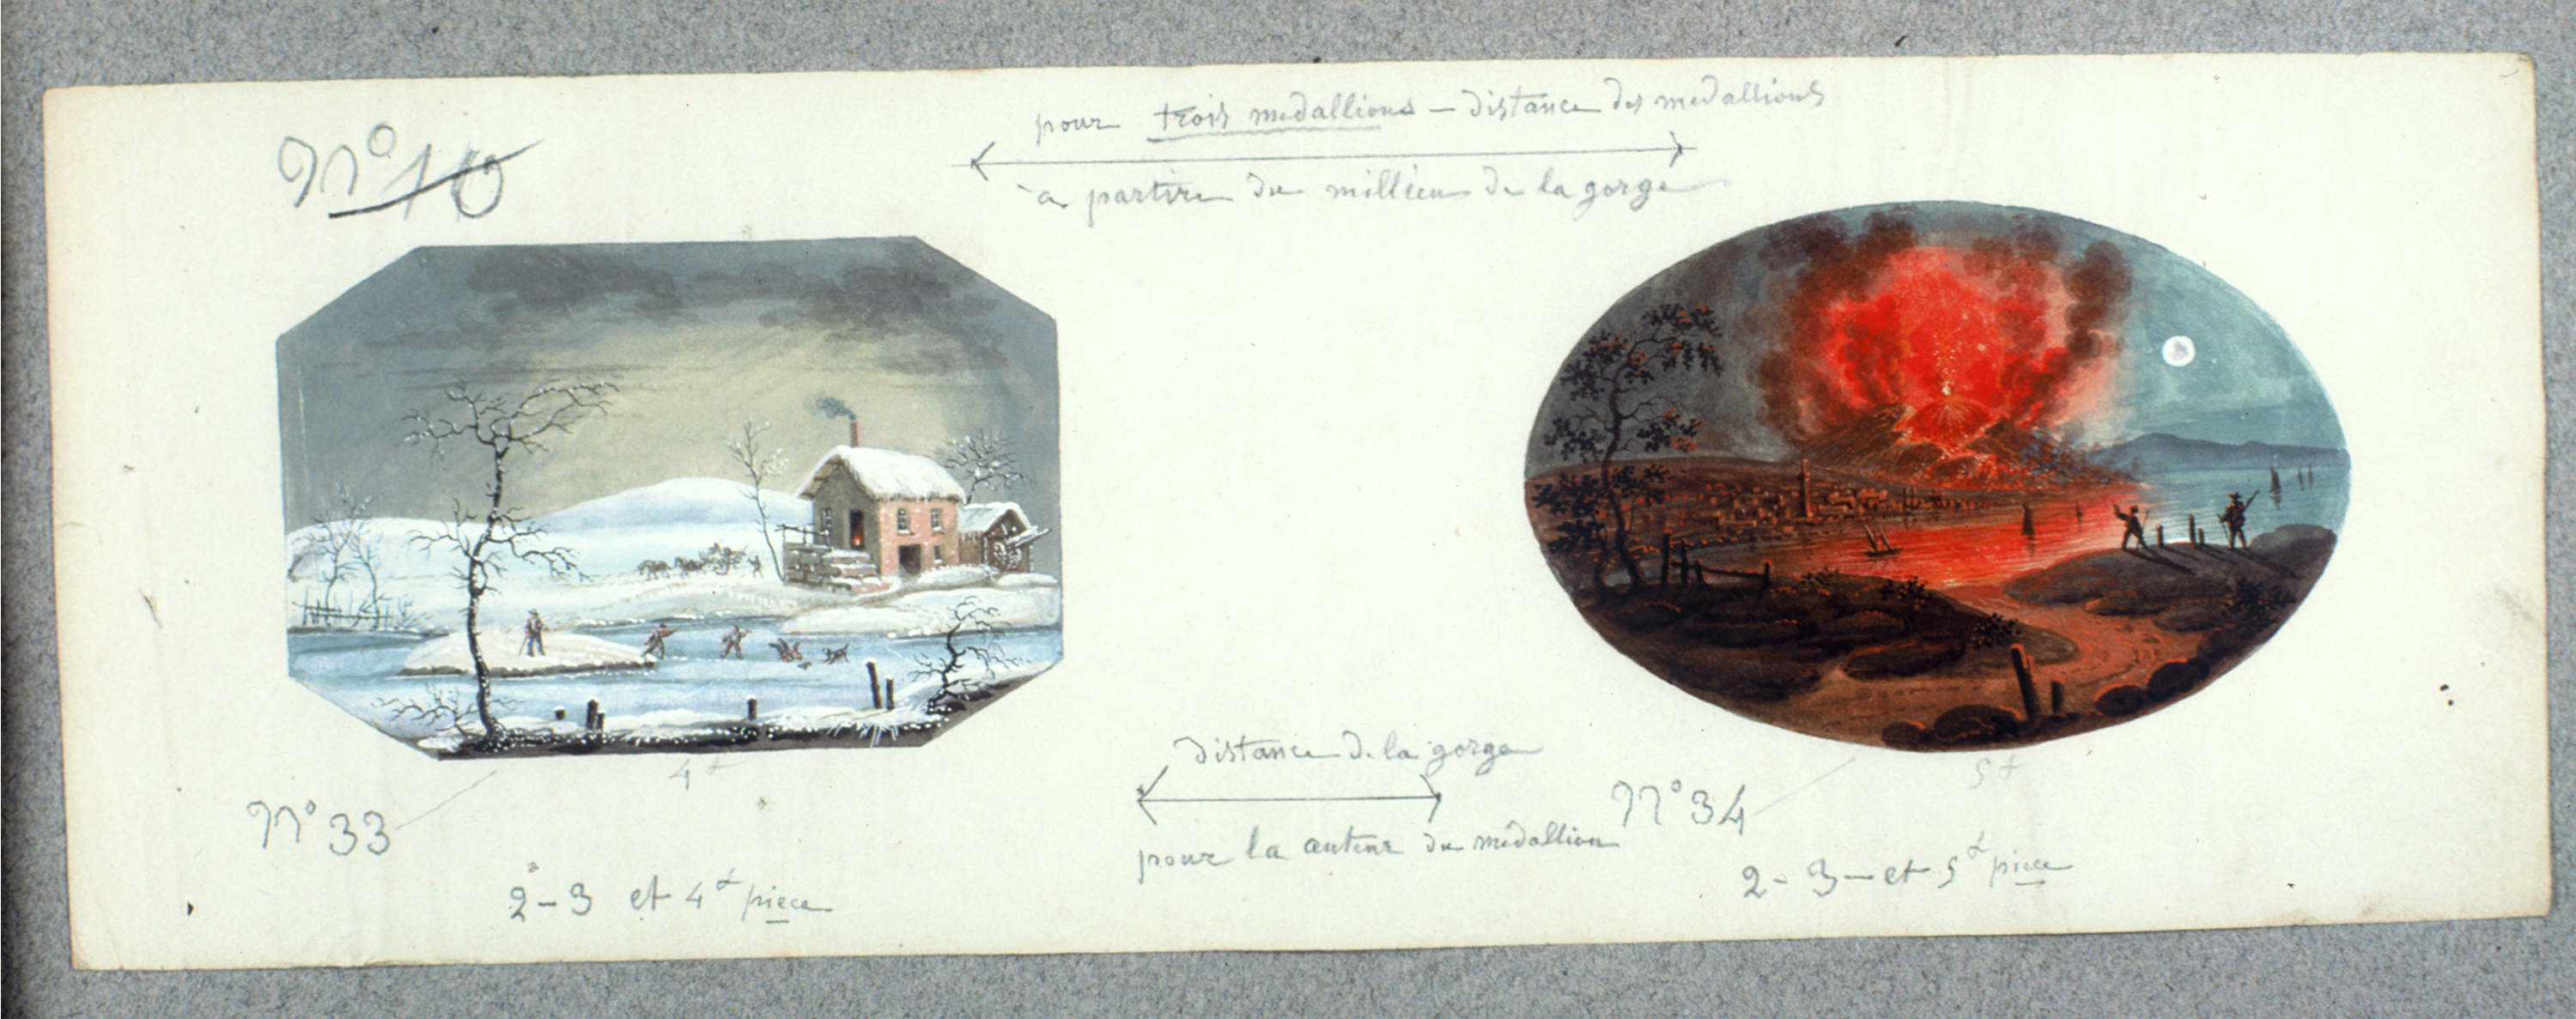 N° 10
pour trois medallions — distance des medallions
à partire du millieu de la gorge
4e
distance de la gorge
pour la auteur du médallion
5e
N° 33
N° 34
2-3 et 4e piece
2-3-et 5e piece